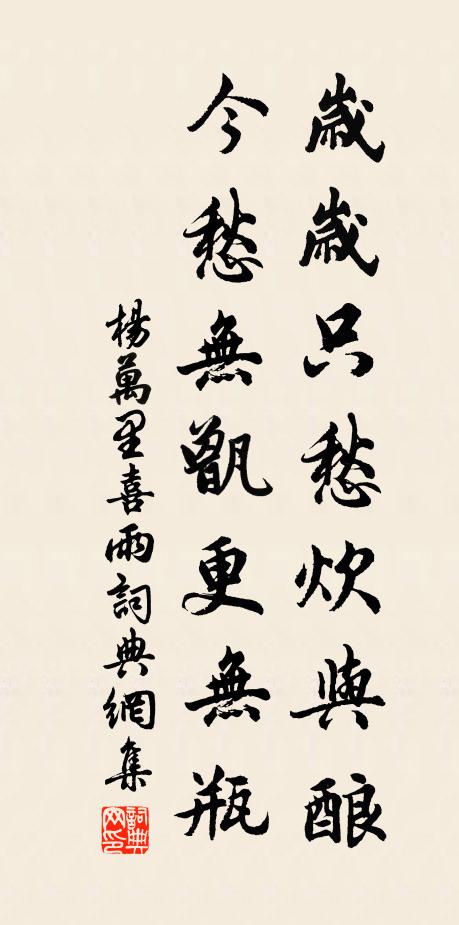 歲歲只愁炊與酿
今愁無甑更無瓶
楊萬里喜雨詞典網集
詞典网印